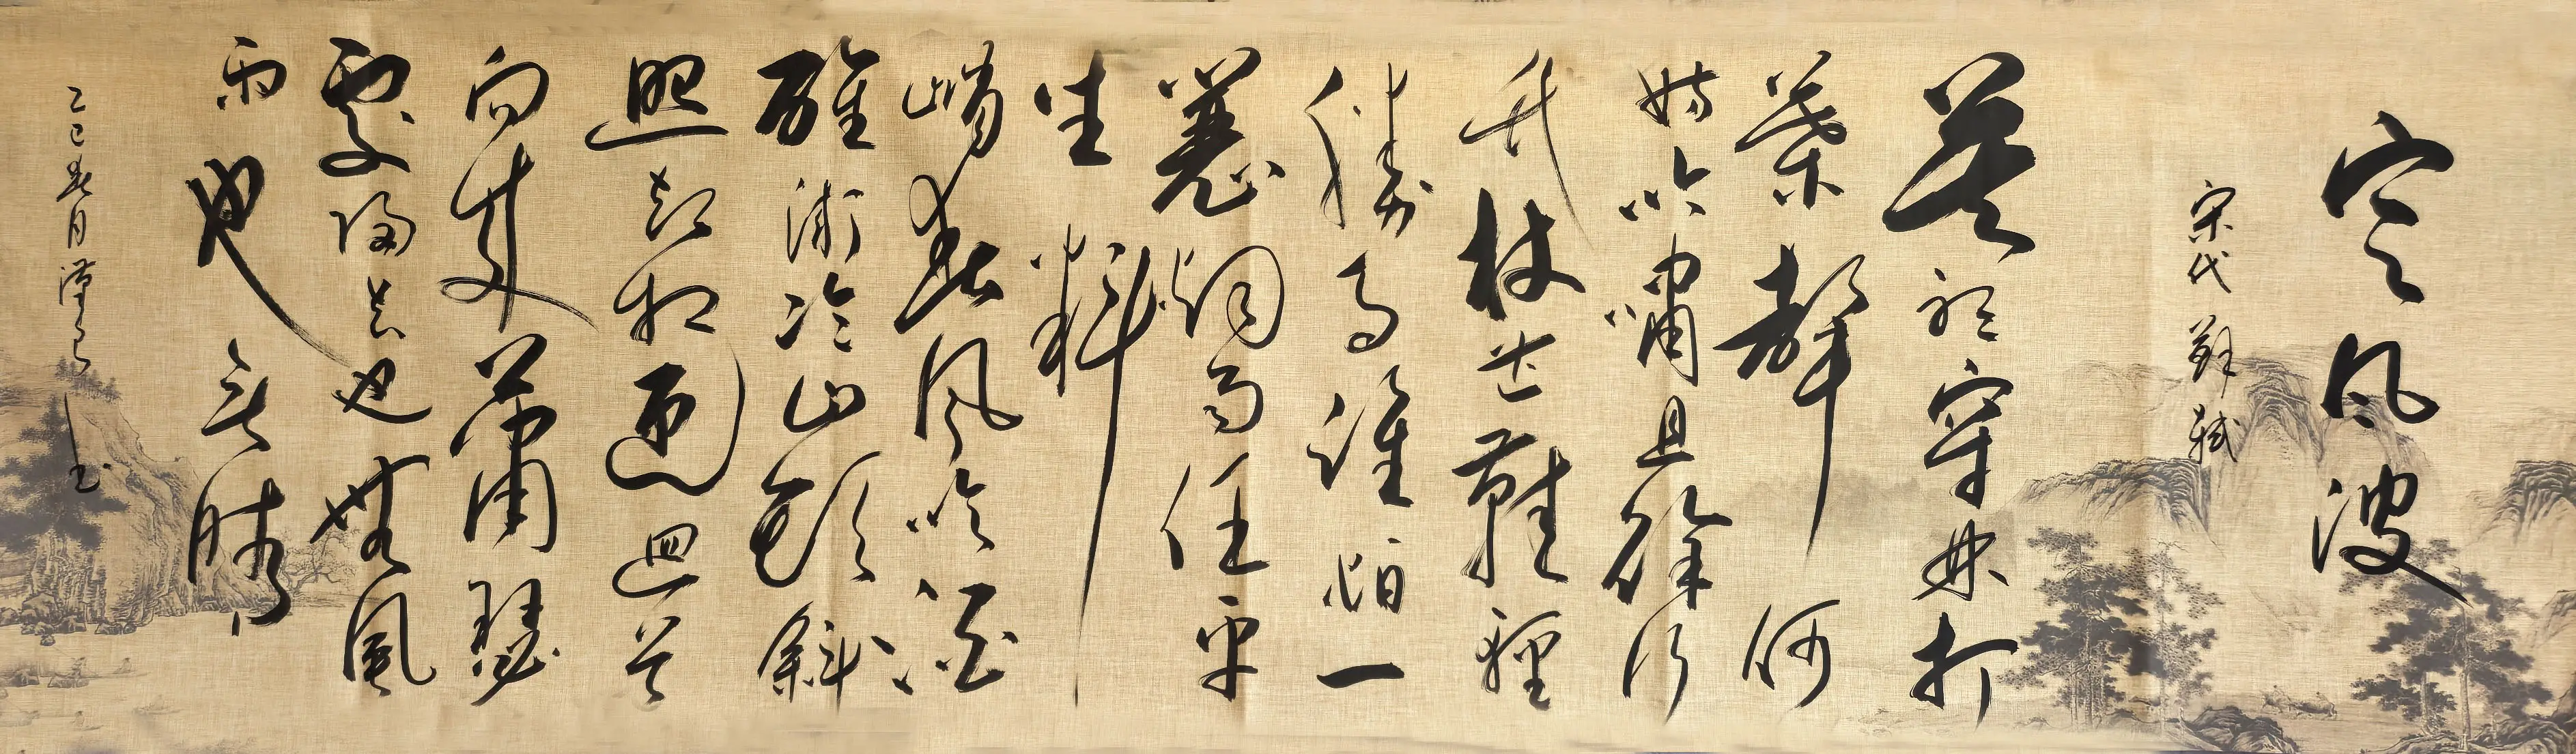 定风波
宋代 蘇軾
莫聽穿林打
葉聲何
妨吟嘯且徐行
竹杖芒鞋輕
勝馬誰怕一
蓑烟雨任平
生料
峭春风吹酒
醒微冷山頭斜
照却相迎迴首
向來蕭瑟
處歸去也無風
雨也无晴
乙巳春月 书